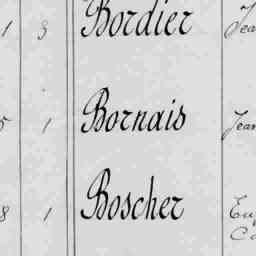 1 3 Bordier Jea
5 1 Bornais Jean
8 1 Boscher Eug
Ca